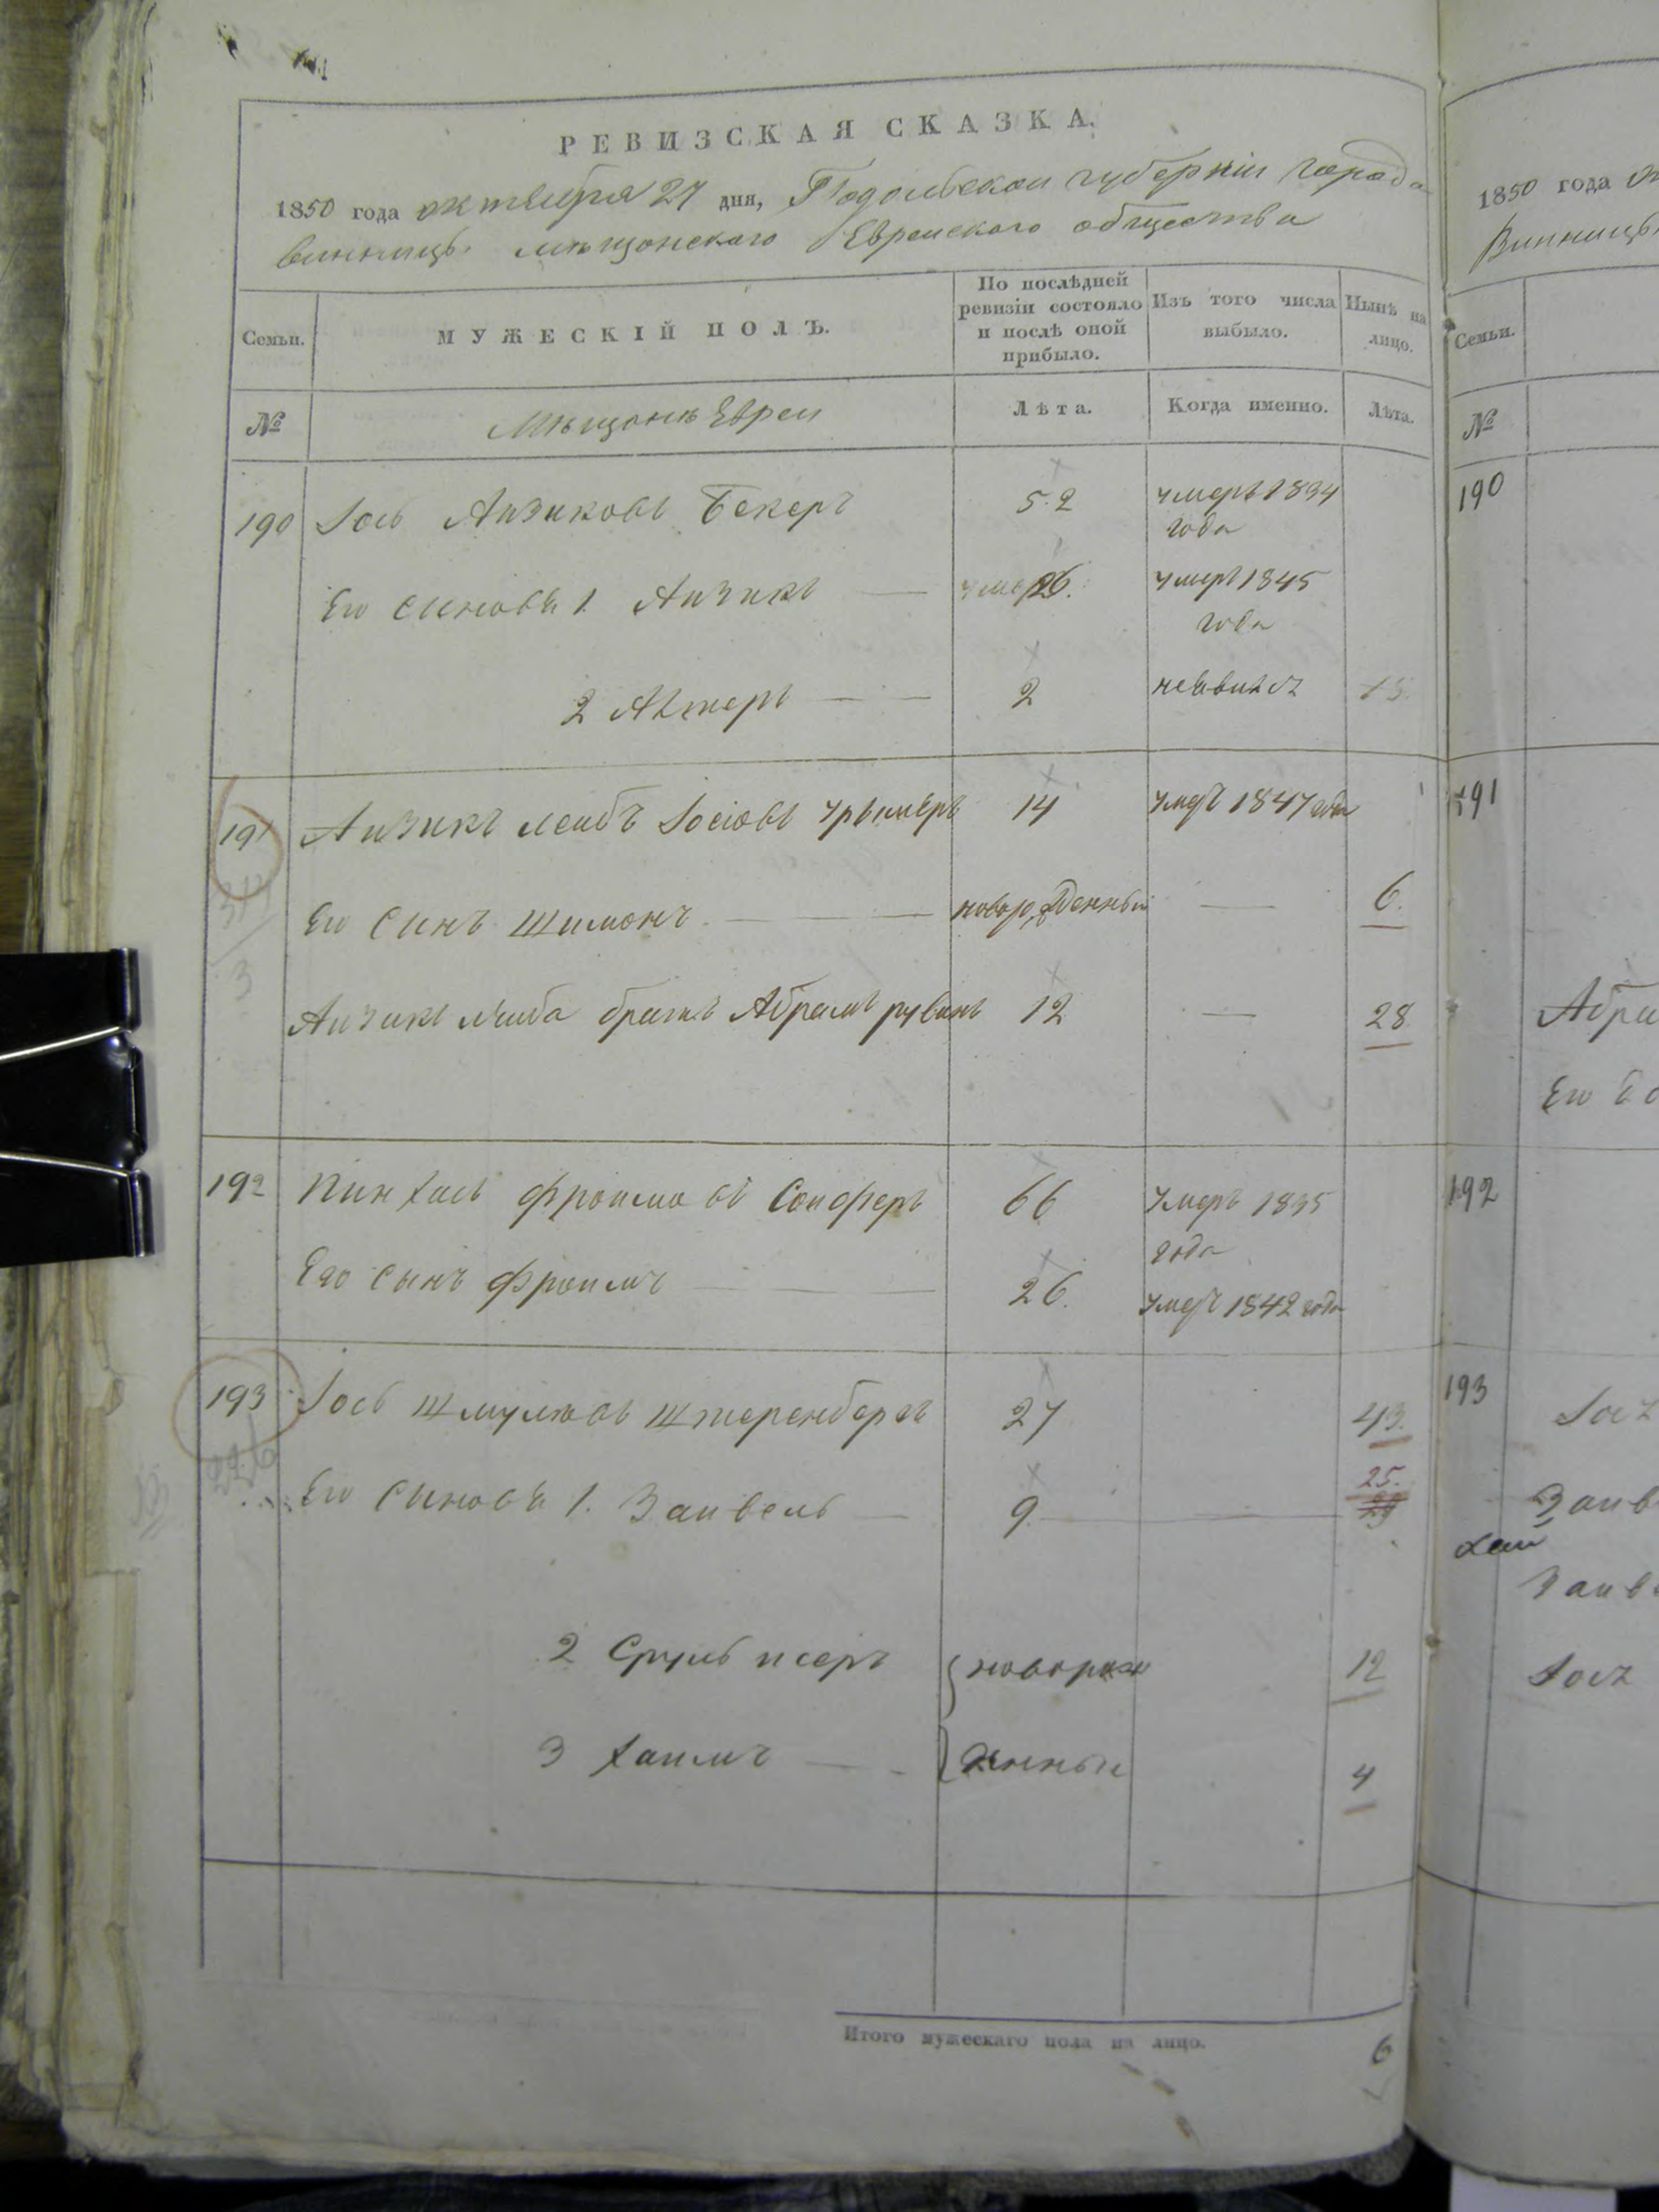 РЕВИЗСКАЯ СКАЗКА.
1850 года октября 27 дня, Подольской губерніи города
Винницы мѣщанскаго Еврейскаго общества
Семьи. МУЖЕСКІЙ ПОЛЪ. По послѣдней ревизіи состояло и послѣ оной прибыло. Изъ того числа выбыло. Нынѣ на лицо.
№ Мѣщане Евреи Лѣта. Когда именно. Лѣта.
190 Іось Айзиковъ Бекеръ 52 умеръ 1834 года
Его синовья 1. Айзикъ — 26. умеръ 1845 года
2 Алтеръ — — 2 неявился 15.
191 Айзикъ Лейбъ Іосіовъ 14 умеръ 1847 года
Его синъ Шимонъ — — новорожденный — 6.
Айзикъ Лейба братъ Абрамъ Рувинъ 12 — 28
192 Пинхась Фроимовъ Сойферъ 66 умеръ 1835 года
Его сынъ Фроимъ — — — 26. умеръ 1842 года
193 Іось Шмулювъ Штеренбергъ 27 43.
226
Его синовья 1. Зайвель — 9. — — 25.
2 Сруль исеръ новорож 12
3 Хаимъ — - денныи 4
Итого мужескаго пола на лицо. 6
1850 года
Винницы
Семьи.
№
190
191
Абра
Его
192
193 Іось
Зайв
Зайв
Іось